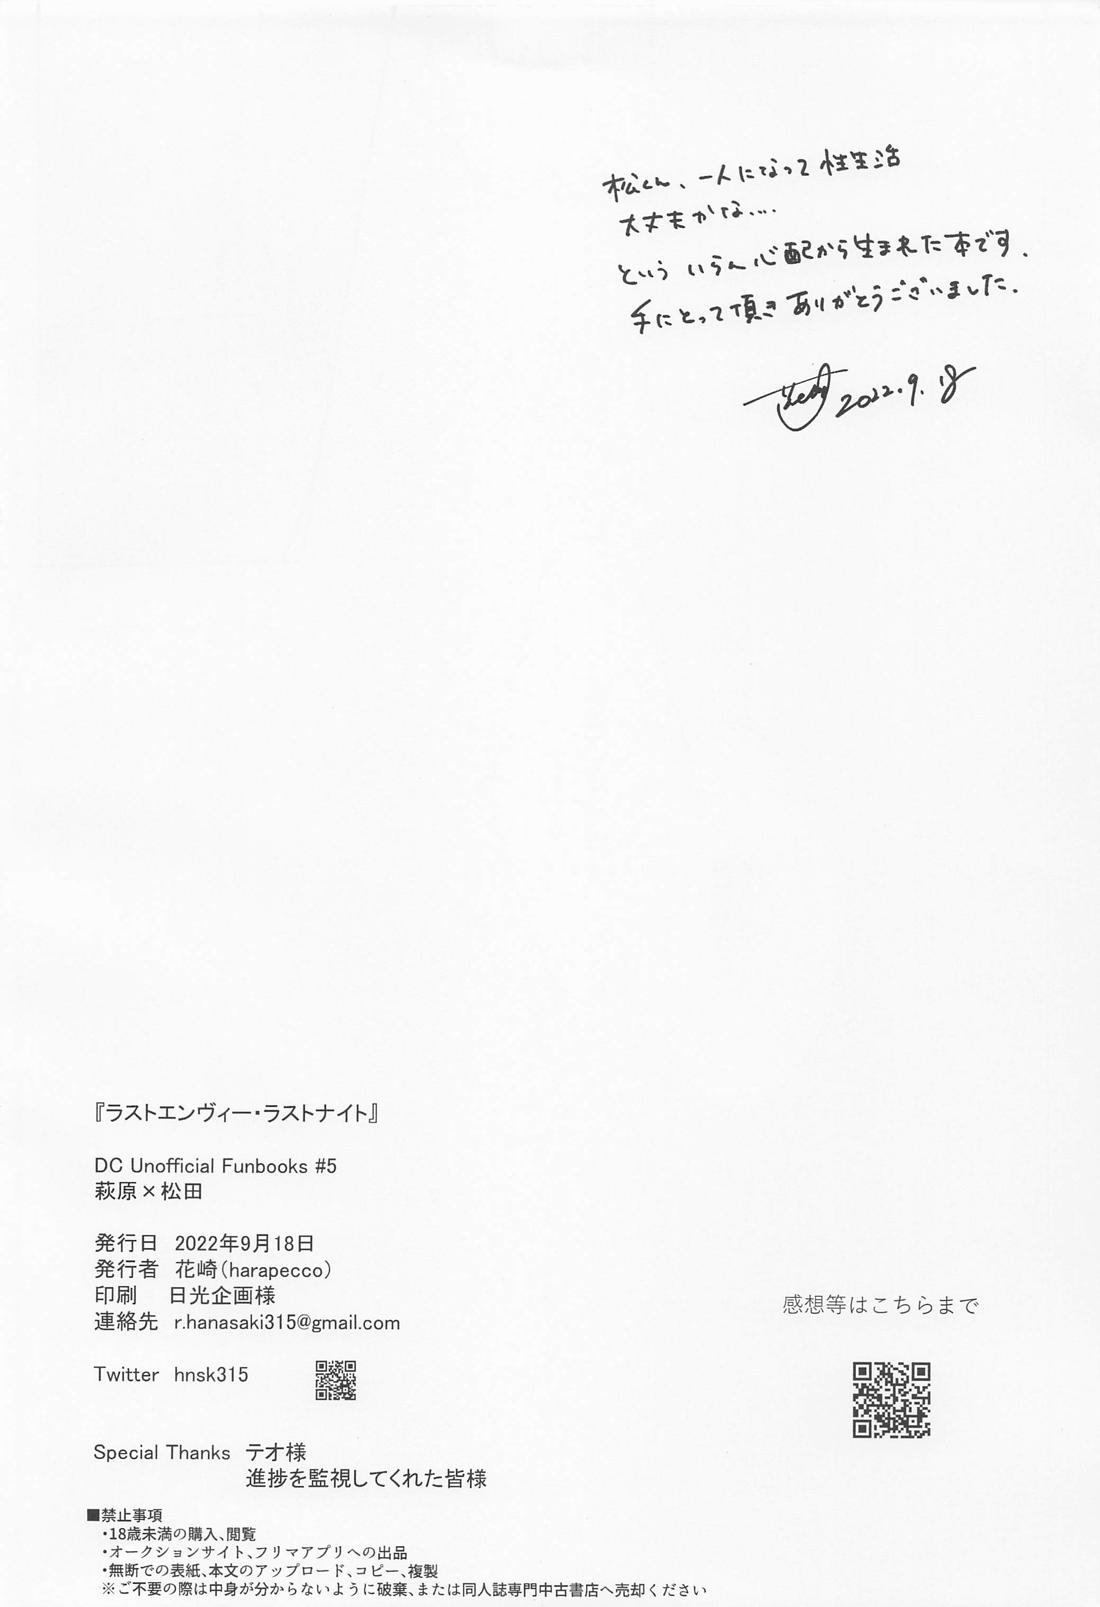 松くん、一人になって性生活
大丈夫かな...
といういらん心配から生まれた本です.
手にとって頂きありがとうございました.
2022.9.18
『ラストエンヴィー・ラストナイト』
DC Unofficial Funbooks #5
萩原×松田
発行日 2022年9月18日
発行者 花崎(harapecco)
印刷 日光企画様
連絡先 r.hanasaki315@gmail.com
Twitter hnsk315
感想等はこちらまで
Special Thanks テオ様
進捗を監視してくれた皆様
■禁止事項
・18歳未満の購入、閲覧
・オークションサイト、フリマアプリへの出品
・無断での表紙、本文のアップロード、コピー、複製
※ご不要の際は中身が分からないように破棄、または同人誌専門中古書店へ売却ください